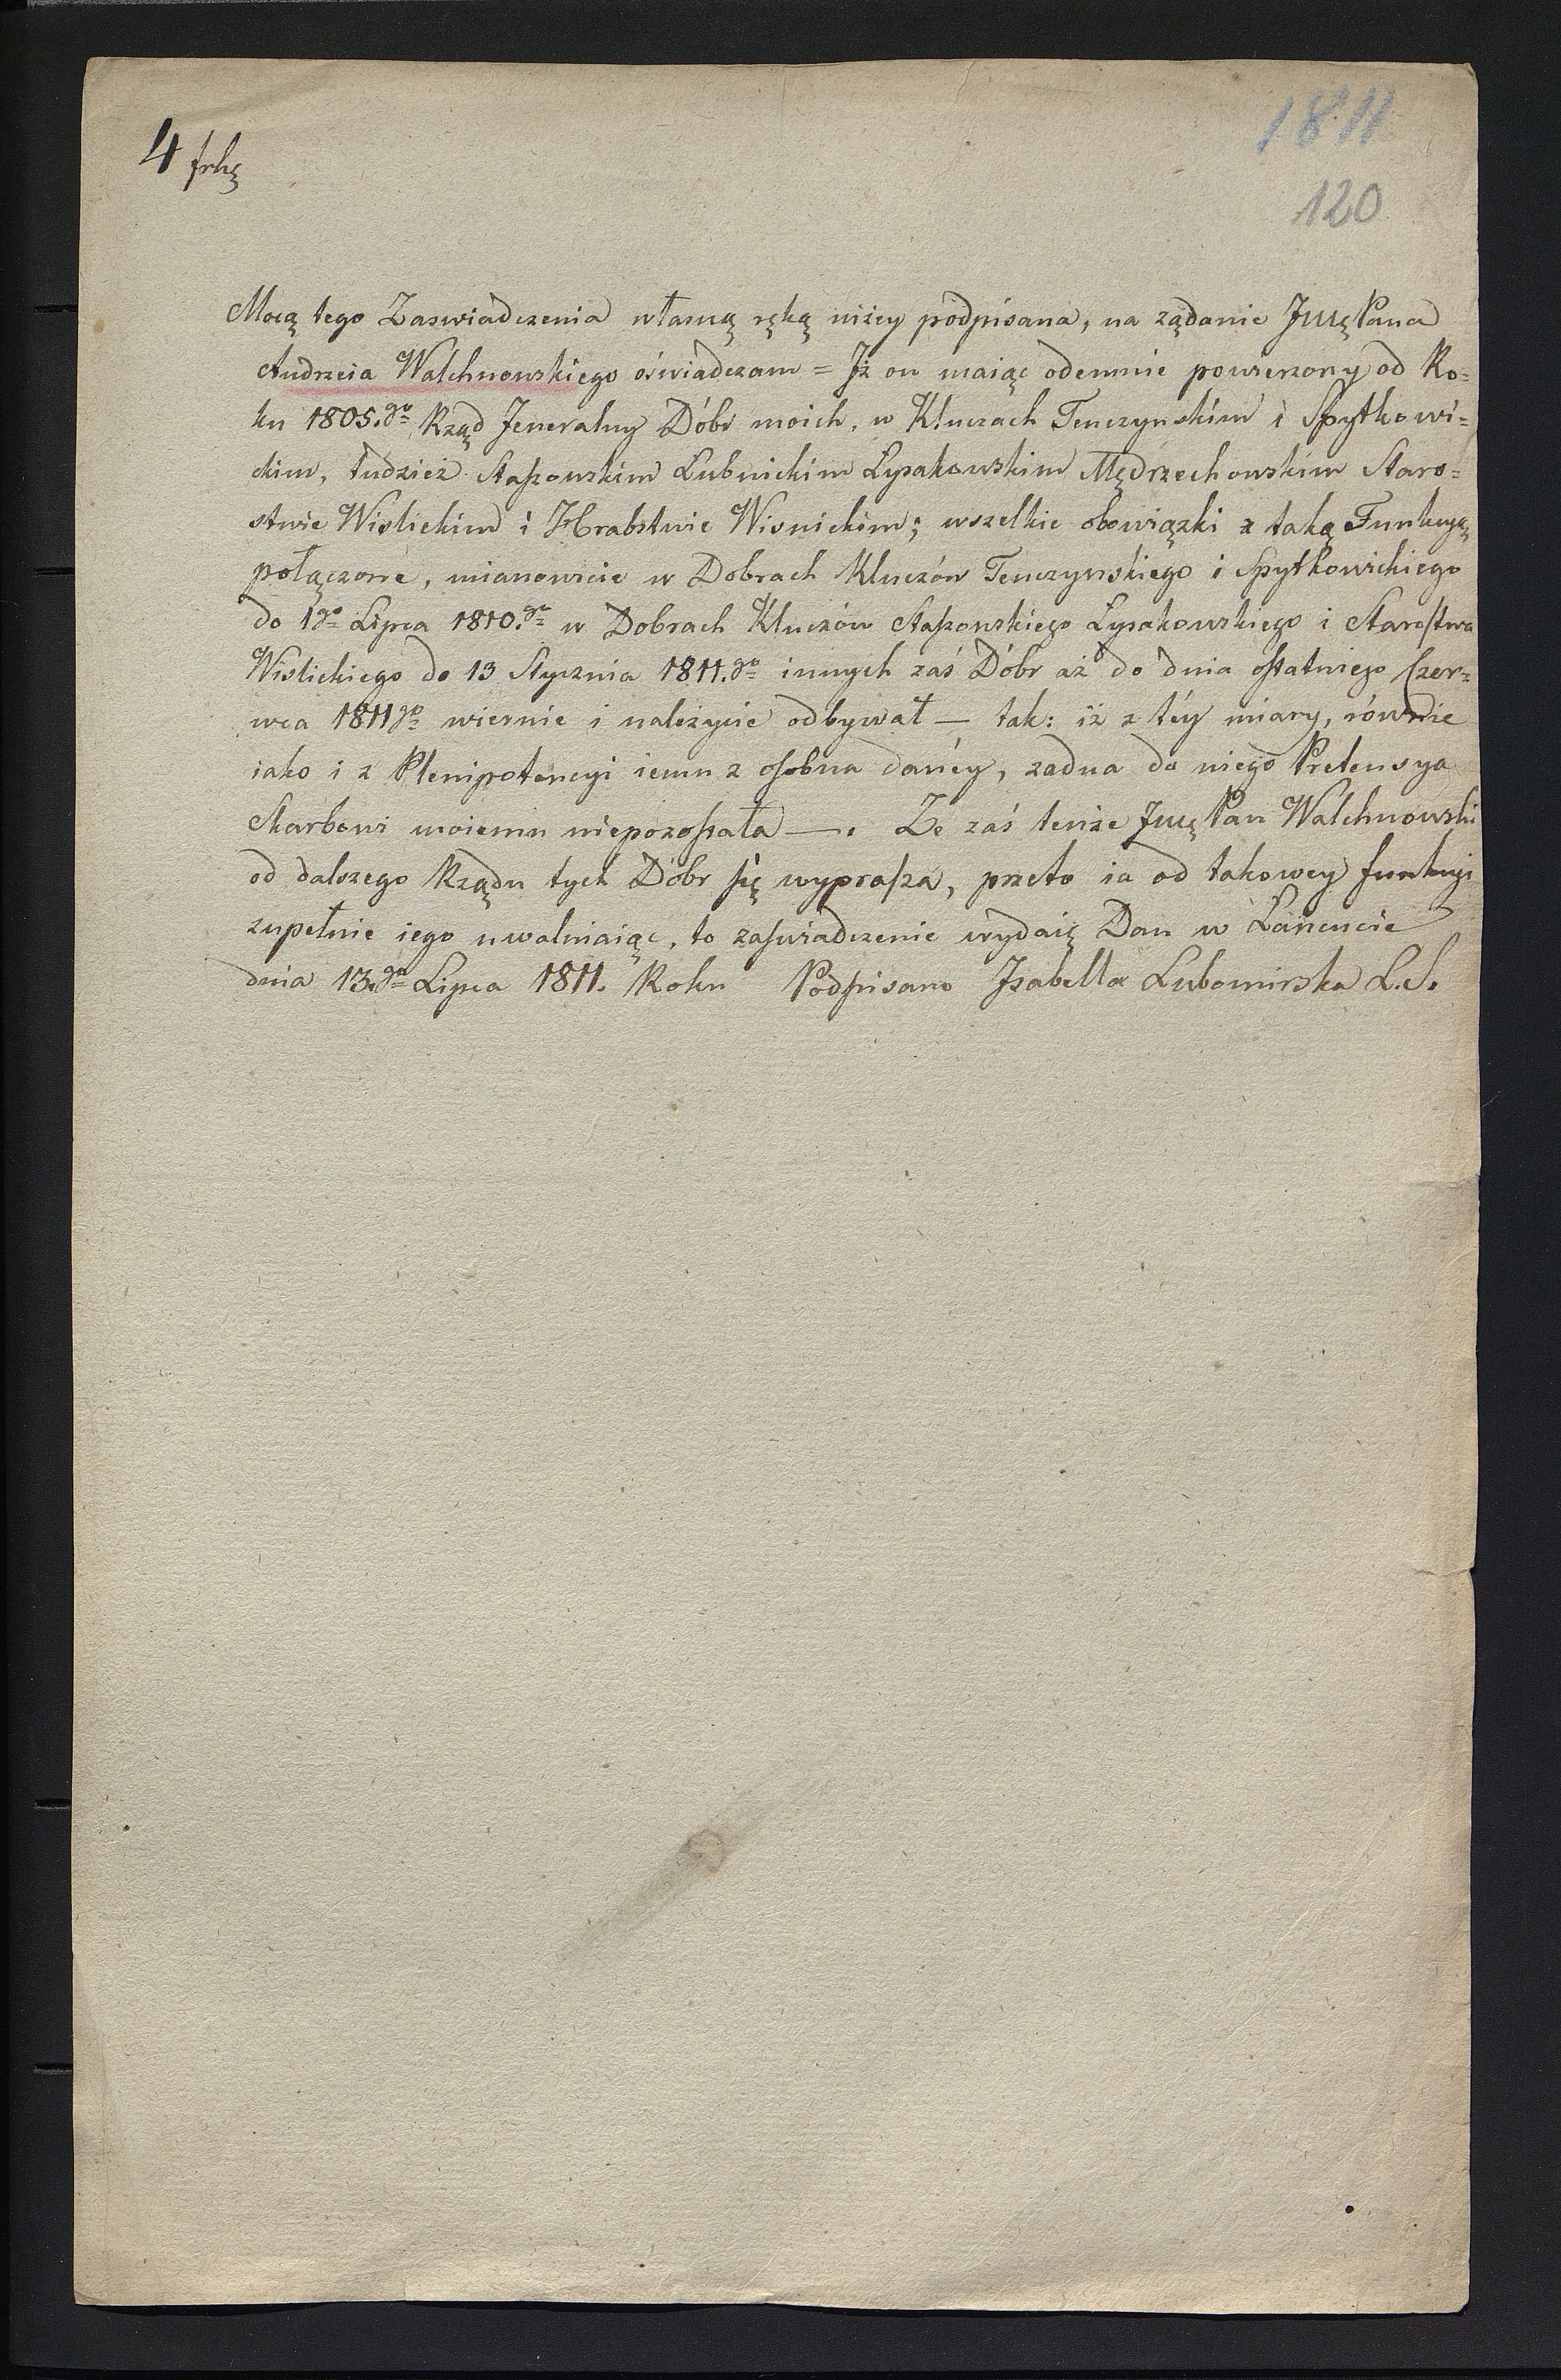 1811
4
120
Mocą tego Zaswiadczenia własną ręką niżey podpisana, na ządanie Jmę Pana
Andrzeia Walchnowskiego oświadczam = Jż on maiąc odemnie powierzony od Ro=
ku 1805.go Rząd Jeneralny Dóbr moich, w Kluczach Tenczynskim i Spytkowi=
ckim, tudzież Staszowskim Lubnickim Łysakowskim Mędrzechowskim Staro=
stwie Wislickim i Hrabstwie Wisnickim; wszelkie obowiązki z taką Funkcyą
połączone, mianowicie w Dobrach Kluczów Tenczynskiego i Spytkowickiego
do 1go Lipca 1810.go w Dobrach Kluczów Staszowskiego Łysakowskiego i Starostwa
Wislickiego do 13 Stycznia 1811.go innych zaś Dóbr aż do dnia ostatniego Czer=
wca 1811go wiernie i należycie odbywał — tak: iż z téy miary, równie
iako i z Plenipotencyi iemu z osobna danéy, zadna do niego Pretensya
Skarbowi moiemu niepozostała —. Ze zaś tenże Jmę Pan Walchnowski
od dalszego Rządu tych Dóbr się wyprasza, przeto ia od takowey funkcyi
zupełnie iego uwalniaiąc, to zaswiadczenie wydaię Dan w Łancucie
dnia 13.go Lipca 1811. Roku Podpisano Izabella Lubomirska L.S.